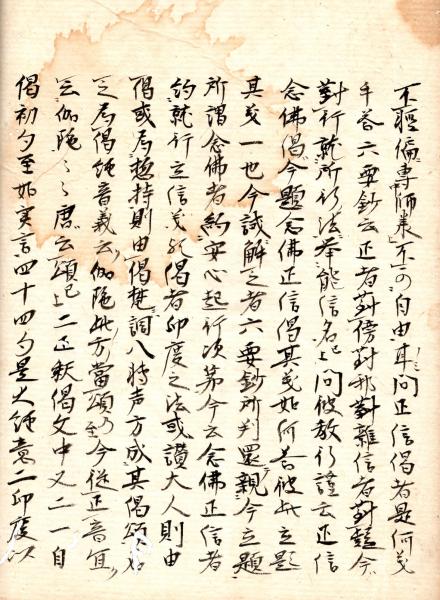 不軽偏専師表不可自由耳問正信偈者是何義
手答六要鈔云正者對傍對邪對雜信者對疑今
對行就所行法挙能信名上問彼教行證云正信
念佛偈今題念佛正信偈其義如何答彼此立題
其義一也今試解之者六要鈔所判還親今立題
所謂念佛者約安心起行次第今云念佛正信者
約就行立信義也偈者印度之法或讃大人則由
偈或為捴持則由偈梵詞八時声方成其偈頌名
之為偈純音義云伽陀此方當頌今從正音宜
云伽陀唐云頌上二正釈偈文中文二一自
偈初句至如実言四十四句是大経意二印度以